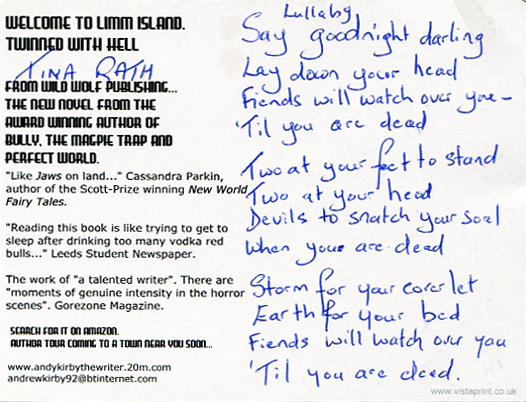 WELCOME TO LIMM ISLAND.
TWINNED WITH HELL
TINA RATH
FROM WILD WOLF PUBLISHING...
THE NEW NOVEL FROM THE
AWARD WINNING AUTHOR OF
BULLY, THE MAGPIE TRAP AND
PERFECT WORLD.
"Like Jaws on land..." Cassandra Parkin,
author of the Scott-Prize winning New World
Fairy Tales.
"Reading this book is like trying to get to
sleep after drinking too many vodka red
bulls..." Leeds Student Newspaper.
The work of "a talented writer". There are
"moments of genuine intensity in the horror
scenes". Gorezone Magazine.
SEARCH FOR IT ON AMAZON.
AUTHOR TOUR COMING TO A TOWN NEAR YOU SOON...
www.andykirbythewriter.20m.com
andrewkirby92@btinternet.com
Lullaby
Say goodnight darling
Lay down your head
Fiends will watch over you -
'Til you are dead
Two at your feet to stand
Two at your head
Devils to snatch your soul
When you are dead
Storm for your coverlet
Earth for your bed
Fiends will watch over you
'Til you are dead.
www.vistaprint.co.uk